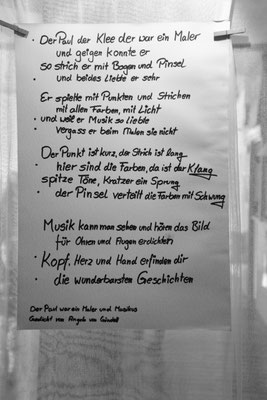 Der Paul der Klee der war ein Maler
und geigen konnte er
so strich er mit Bogen und Pinsel
und beides liebte er sehr
Er spielte mit Punkten und Strichen
mit allen Farben, mit Licht
und weil er Musik so liebte
vergass er beim Malen sie nicht
Der Punkt ist kurz, der Strich ist lang
hier sind die Farben, da ist der Klang
spitze Töne, Kratzer ein Sprung
der Pinsel verteilt die Farben mit Schwung
Musik kann man sehen und hören das Bild
für Ohren und Augen erdichten
Kopf, Herz und Hand erfinden dir
die wunderbarsten Geschichten
Der Paul war ein Maler und Musikus
Gedicht von Angela von